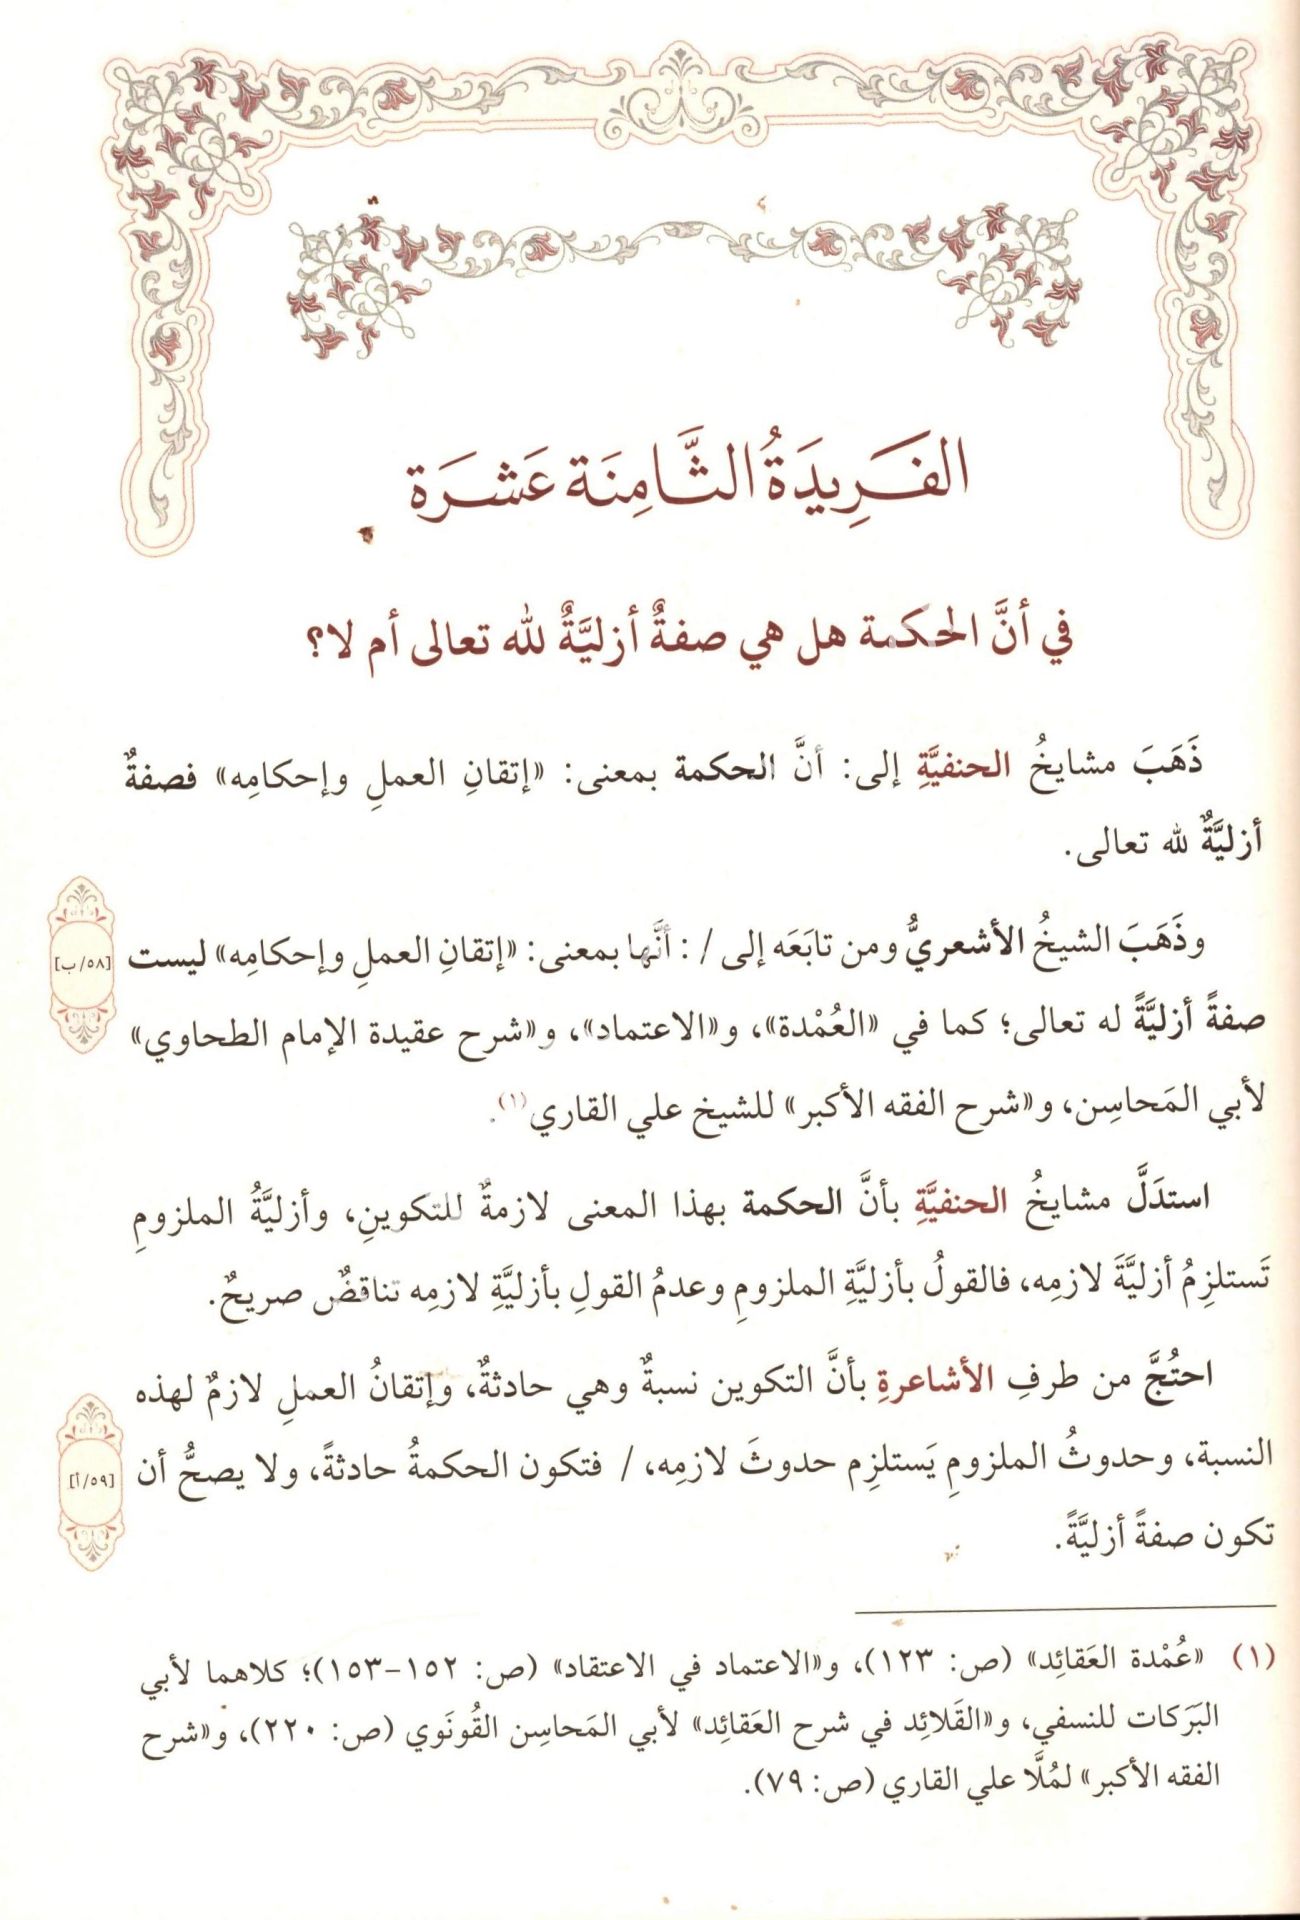 الفَرِيدَةُ الثَّامِنَة عَشرَة
في أنَّ الحكمة هل هي صفةٌ أزليَّةٌ لله تعالى أم لا؟
ذَهَبَ مشايخُ الحنفيَّةِ إلى: أنَّ الحكمة بمعنى: «إتقانِ العملِ وإحكامِه» فصفةٌ
أزليَّةٌ لله تعالى.
وذَهَبَ الشيخُ الأشعريُّ ومن تابَعَه إلى / : أنَّها بمعنى: «إتقانِ العملِ وإحكامِه» ليست
[٥٨/ب]
صفةً أزليَّةً له تعالى؛ كما في «العُمْدة»، و«الاعتماد»، و«شرح عقيدة الإمام الطحاوي»
لأبي المَحاسِن، و«شرح الفقه الأكبر» للشيخ علي القاري(١).
استدَلَّ مشايخُ الحنفيَّةِ بأنَّ الحكمة بهذا المعنى لازمةٌ للتكوينِ، وأزليَّةُ الملزومِ
تَستلزِمُ أزليَّةَ لازمِه، فالقولُ بأزليَّةِ الملزومِ وعدمُ القولِ بأزليَّةِ لازمِه تناقضٌ صريحٌ.
احتُجَّ من طرفِ الأشاعرةِ بأنَّ التكوين نسبةٌ وهي حادثةٌ، وإتقانُ العملِ لازمٌ لهذه
النسبة، وحدوثُ الملزومِ يَستلزِم حدوثَ لازمِه، / فتكون الحكمةُ حادثةً، ولا يصحُّ أن
[٥٩/أ]
تكون صفةً أزليَّةً.
(١) «عُمْدة العَقائِد» (ص: ١٢٣)، و«الاعتماد في الاعتقاد» (ص: ١٥٢-١٥٣)؛ كلاهما لأبي
البَرَكات للنسفي، و«القَلائِد في شرح العَقائِد» لأبي المَحاسِن القُونَوي (ص: ٢٢٠)، و«شرح
الفقه الأكبر» لمُلَّا علي القاري (ص: ٧٩).